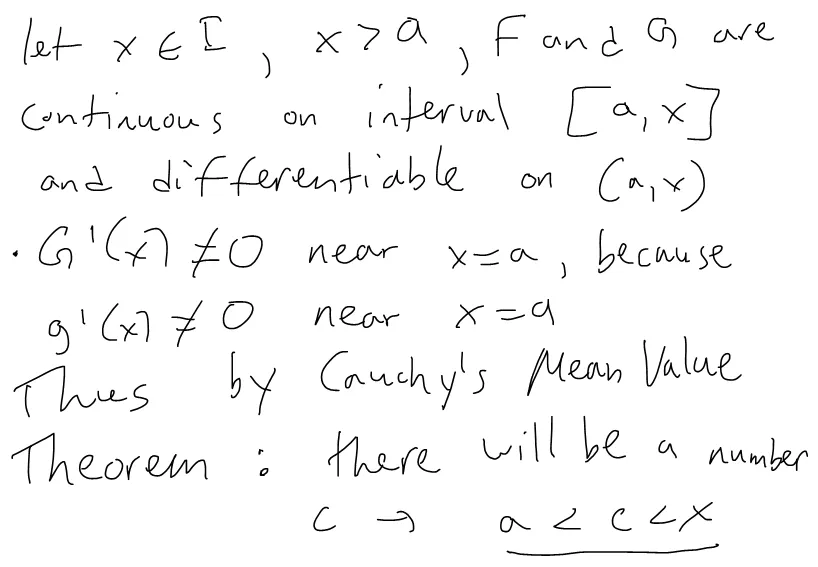 let x ∈ I, x > a, F and G are
continuous on interval [a, x]
and differentiable on (a, x)
• G'(x) ≠ 0 near x = a, because
g'(x) ≠ 0 near x = a
Thus by Cauchy's Mean Value
Theorem : there will be a number
c → a < c < x